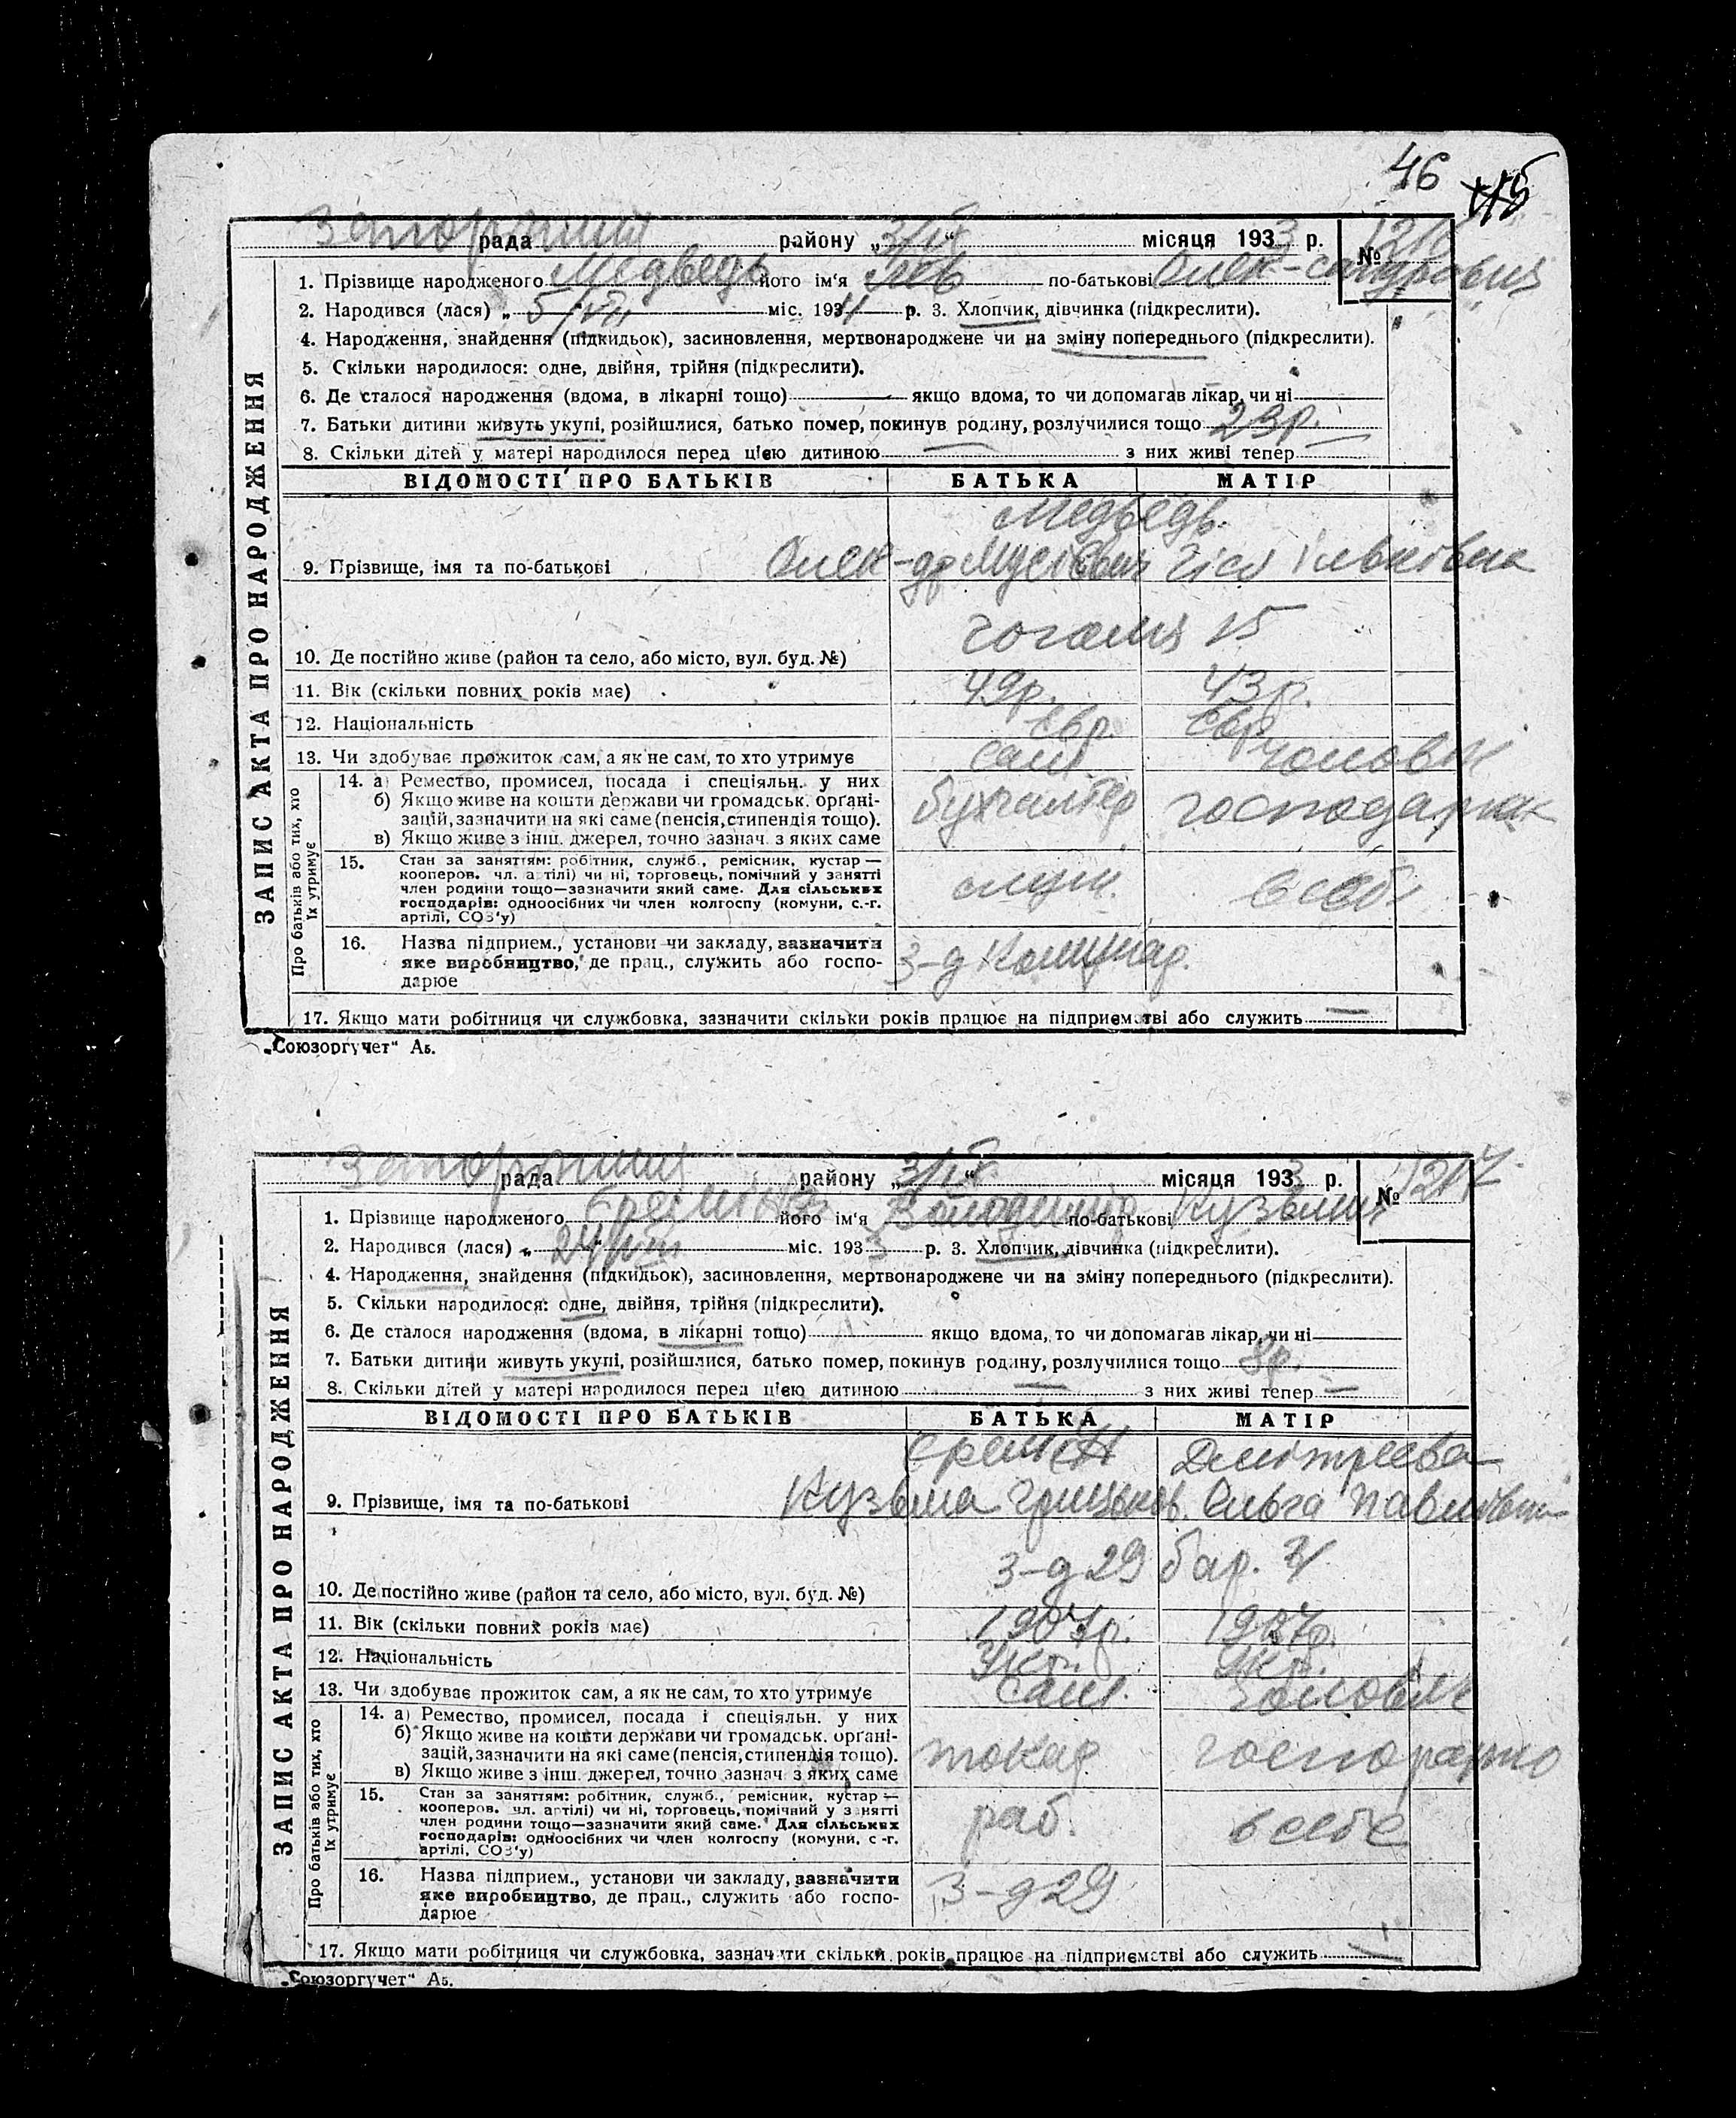 46 45
рада району „3/ІХ“ місяця 1933 р. №
1. Прізвище народженого Медведь його ім‘я Лев по-батькові Олек-сандрович
2. Народився (лася) „5/VII міс. 1911 р. 3. Хлопчик, дівчинка (підкреслити).
4. Народження, знайдення (підкидьок), засиновлення, мертвонароджене чи на зміну попереднього (підкреслити).
5. Скільки народилося: одне, двійня, трійня (підкреслити).
6. Де сталося народження (вдома, в лікарні тощо) — якщо вдома, то чи допомагав лікар, чи ні
7. Батьки дитини живуть укупі, розійшлися, батько помер, покинув родину, розлучилися тощо 23р.
8. Скільки дітей у матері народилося перед цією дитиною — з них живі тепер —
ВІДОМОСТІ ПРО БАТЬКІВ БАТЬКА МАТІР
Медведь
9. Прізвище, імя та по-батькові Олек-др Мусієвич
10. Де постійно живе (район та село, або місто, вул. буд. №) Гоголя 15
11. Вік (скільки повних років має) 49р. 43р.
12. Національність Євр. Євр.
13. Чи здобуває прожиток сам, а як не сам, то хто утримує сам чоловік
14. а) Ремество, промисел, посада і спеціяльн. у них
б) Якщо живе на кошти держави чи громадськ. орґані-
зацій, зазначити на які саме (пенсія, стипендія тощо).
в) Якщо живе з інш. джерел, точно зазнач. з яких саме
бухгалтер
15. Стан за заняттям: робітник, служб., ремісник, кустар —
кооперов. чл. артілі) чи ні, торговець, помічний у занятті
член родини тощо—зазначити який саме. Для сільських
господарів: одноосібних чи член колгоспу (комуни, с.-г.
артілі, СОЗ'у)
служ. в себе
16. Назва підприєм., установи чи закладу, зазначити
яке виробництво, де прац., служить або госпо-
дарює
З-д Комунар.
17. Якщо мати робітниця чи службовка, зазначити скільки років працює на підприємстві або служить —
ЗАПИС АКТА ПРО НАРОДЖЕННЯ
Про батьків або тих, хто
їх утримує
„Союзоргучет“ А5.
рада району „3/ІХ“ місяця 1933 р. № 1217
1. Прізвище народженого його ім‘я Володимир по-батькові Кузьмич
2. Народився (лася) „24/VIII міс. 1933 р. 3. Хлопчик, дівчинка (підкреслити).
4. Народження, знайдення (підкидьок), засиновлення, мертвонароджене чи на зміну попереднього (підкреслити).
5. Скільки народилося: одне, двійня, трійня (підкреслити).
6. Де сталося народження (вдома, в лікарні тощо) якщо вдома, то чи допомагав лікар, чи ні
7. Батьки дитини живуть укупі, розійшлися, батько помер, покинув родину, розлучилися тощо
8. Скільки дітей у матері народилося перед цією дитиною — з них живі тепер —
ВІДОМОСТІ ПРО БАТЬКІВ БАТЬКА МАТІР
Дмітрієва
9. Прізвище, імя та по-батькові Кузьма Грицьков. Ольга Павлівна
10. Де постійно живе (район та село, або місто, вул. буд. №) З-д 29 бар.
11. Вік (скільки повних років має) 1907р. 1907р.
12. Національність Укр. Укр.
13. Чи здобуває прожиток сам, а як не сам, то хто утримує сам. чоловік
14. а) Ремество, промисел, посада і спеціяльн. у них
б) Якщо живе на кошти держави чи громадськ. орґані-
зацій, зазначити на які саме (пенсія, стипендія тощо).
в) Якщо живе з інш. джерел, точно зазнач. з яких саме
токар
15. Стан за заняттям: робітник, служб., ремісник, кустар —
кооперов. чл. артілі) чи ні, торговець, помічний у занятті
член родини тощо—зазначити який саме. Для сільських
господарів: одноосібних чи член колгоспу (комуни, с.-г.
артілі, СОЗ'у)
раб. в себе
16. Назва підприєм., установи чи закладу, зазначити
яке виробництво, де прац., служить або госпо-
дарює
З-д 29
17. Якщо мати робітниця чи службовка, зазначити скільки років працює на підприємстві або служить —
ЗАПИС АКТА ПРО НАРОДЖЕННЯ
Про батьків або тих, хто
їх утримує
„Союзоргучет“ А5.